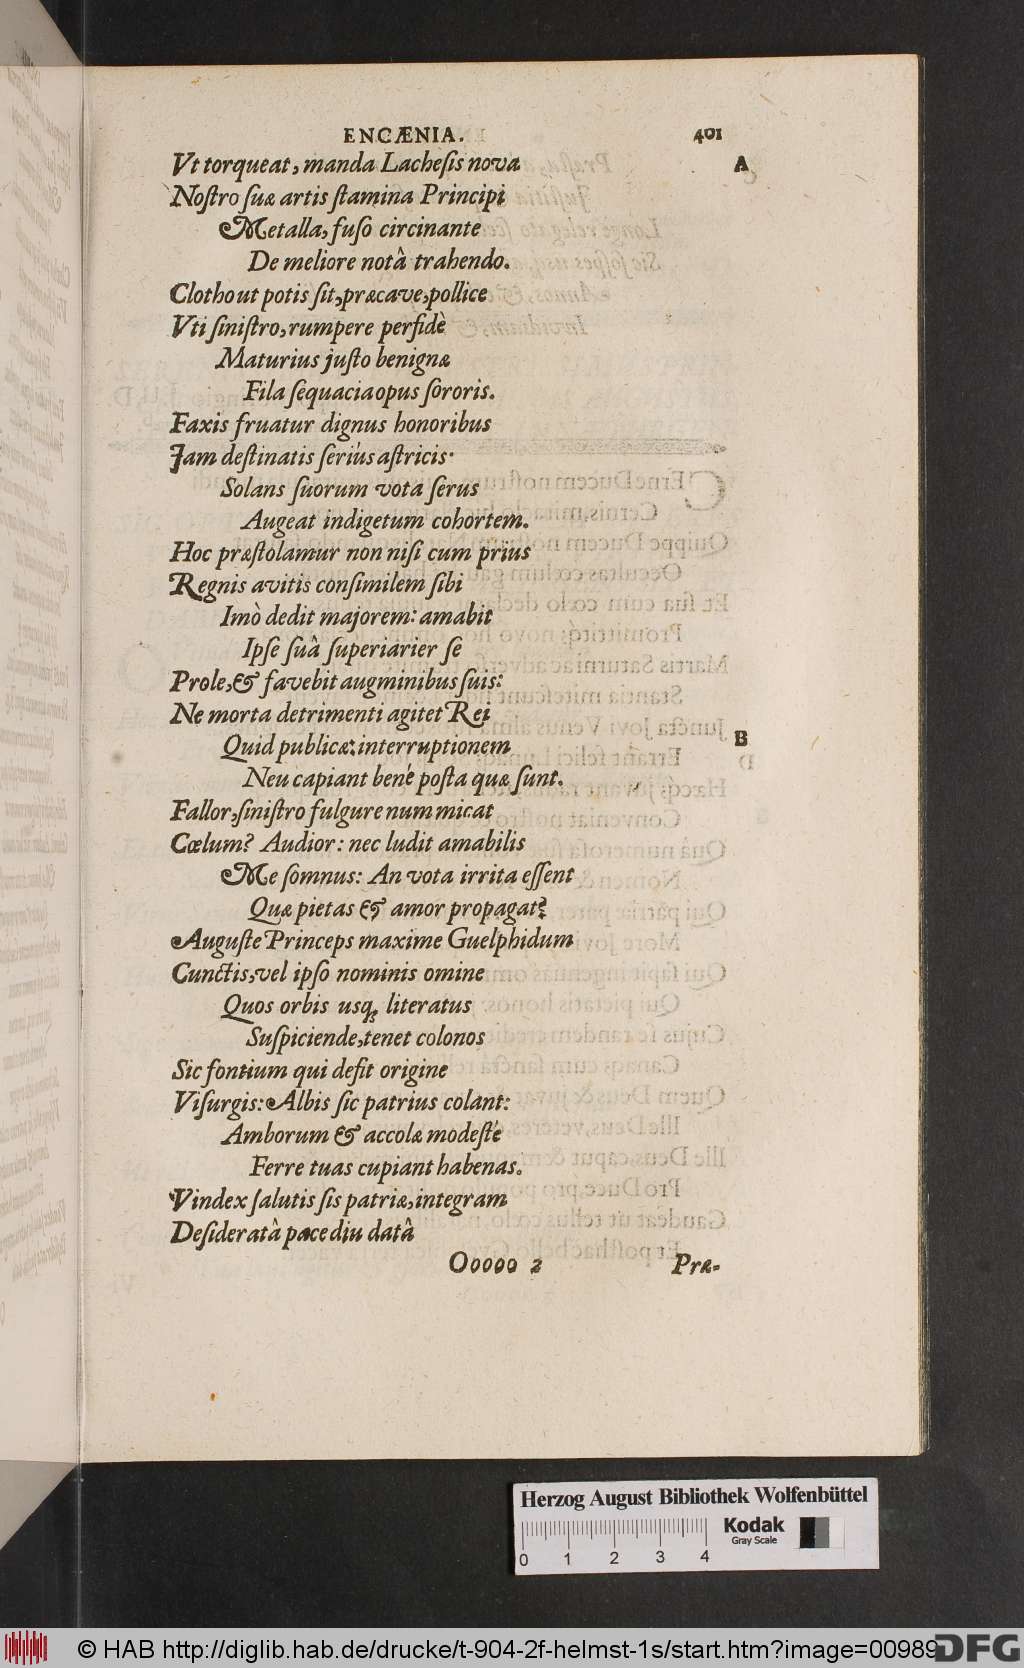 ENCÆNIA. 401
Vt torqueat, manda Lacheſis nova A
Noſtro ſuæ artis ſtamina Principi
Metalla, fuſo circinante
De meliore notâ trahendo.
Clotho ut potis ſit, præcave, pollice
Vti ſiniſtro, rumpere perfidè
Maturius juſto benignæ
Fila ſequacia opus ſororis.
Faxis fruatur dignus honoribus
Jam deſtinatis ſeriùs aſtricis·
Solans ſuorum vota ſerus
Augeat indigetum cohortem.
Hoc præſtolamur non niſi cum prius
Regnis avitis conſimilem ſibi
Imò dedit majorem: amabit
Ipſe ſuâ ſuperiarier ſe
Prole, & favebit augminibus ſuis:
Ne morta detrimenti agitet Rei
Quid publicæ: interruptionem B
Neu capiant benè poſta quæ ſunt.
Fallor, ſiniſtro fulgure num micat
Cœlum? Audior: nec ludit amabilis
Me ſomnus: An vota irrita eſſent
Quæ pietas & amor propagat?
Auguſte Princeps maxime Guelphidum
Cunctis, vel ipſo nominis omine
Quos orbis usq; literatus
Suſpiciende, tenet colonos
Sic fontium qui deſit origine
Viſurgis: Albis ſic patrius colant:
Amborum & accolæ modeſtè
Ferre tuas cupiant habenas.
Vindex ſalutis ſis patriæ, integram
Deſideratâ pace diu datâ
Ooooo 2 Præ-
Herzog August Bibliothek Wolfenbüttel
Kodak
Gray Scale
0 1 2 3 4
© HAB http://diglib.hab.de/drucke/t-904-2f-helmst-1s/start.htm?image=00989
DFG